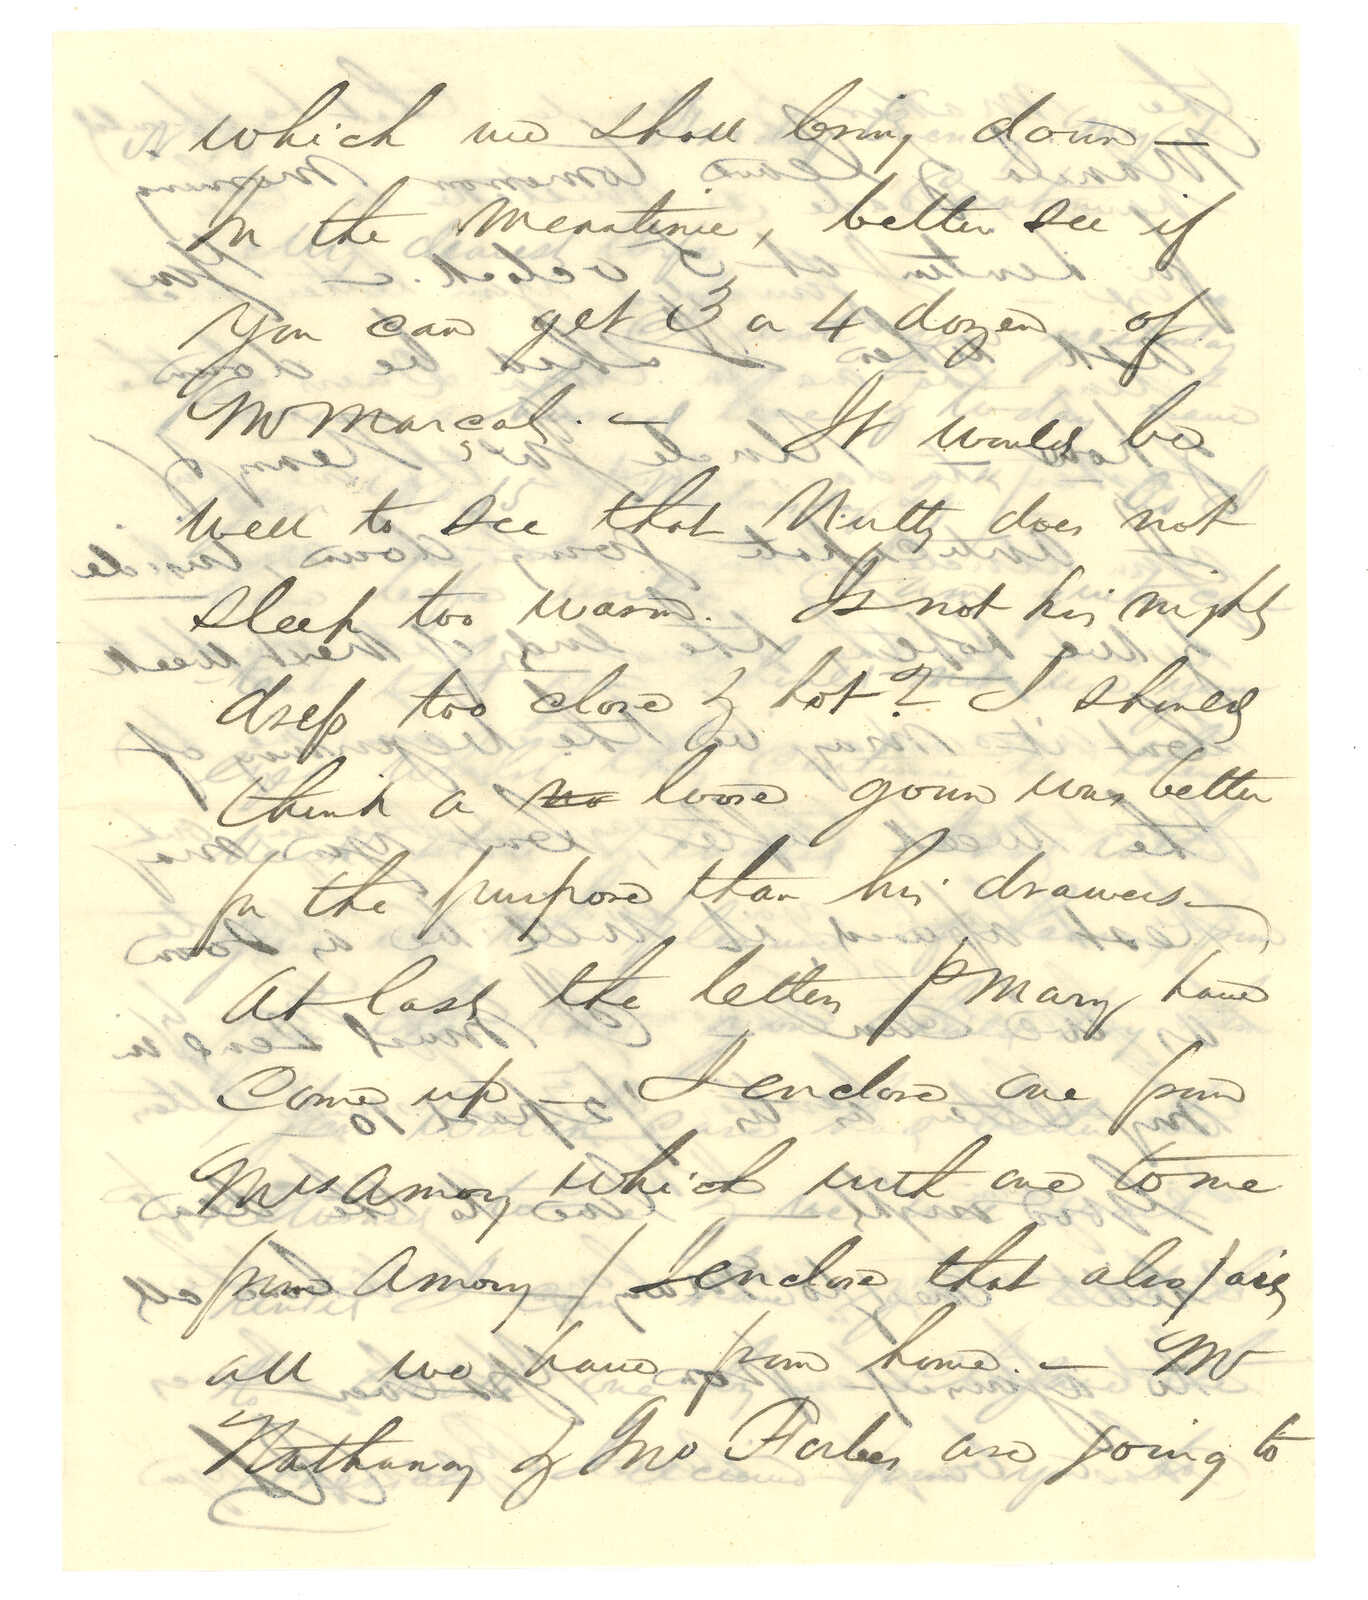 which we shall bring down —
In the meantime, better see if
you can get 3 or 4 dozen of
Mr Marçal. — It would be
well to see that Nutty does not
sleep too warm. Is not his night
dress too close & hot? I should
think a no loose gown was better
for the purpose than his drawers —
At last the letters p Mary have
come up — I enclose one from
Mrs Amory which with one to me
from Amory / I enclose that also / are
all we have from home. — Mr
& Jno Forbes are going to